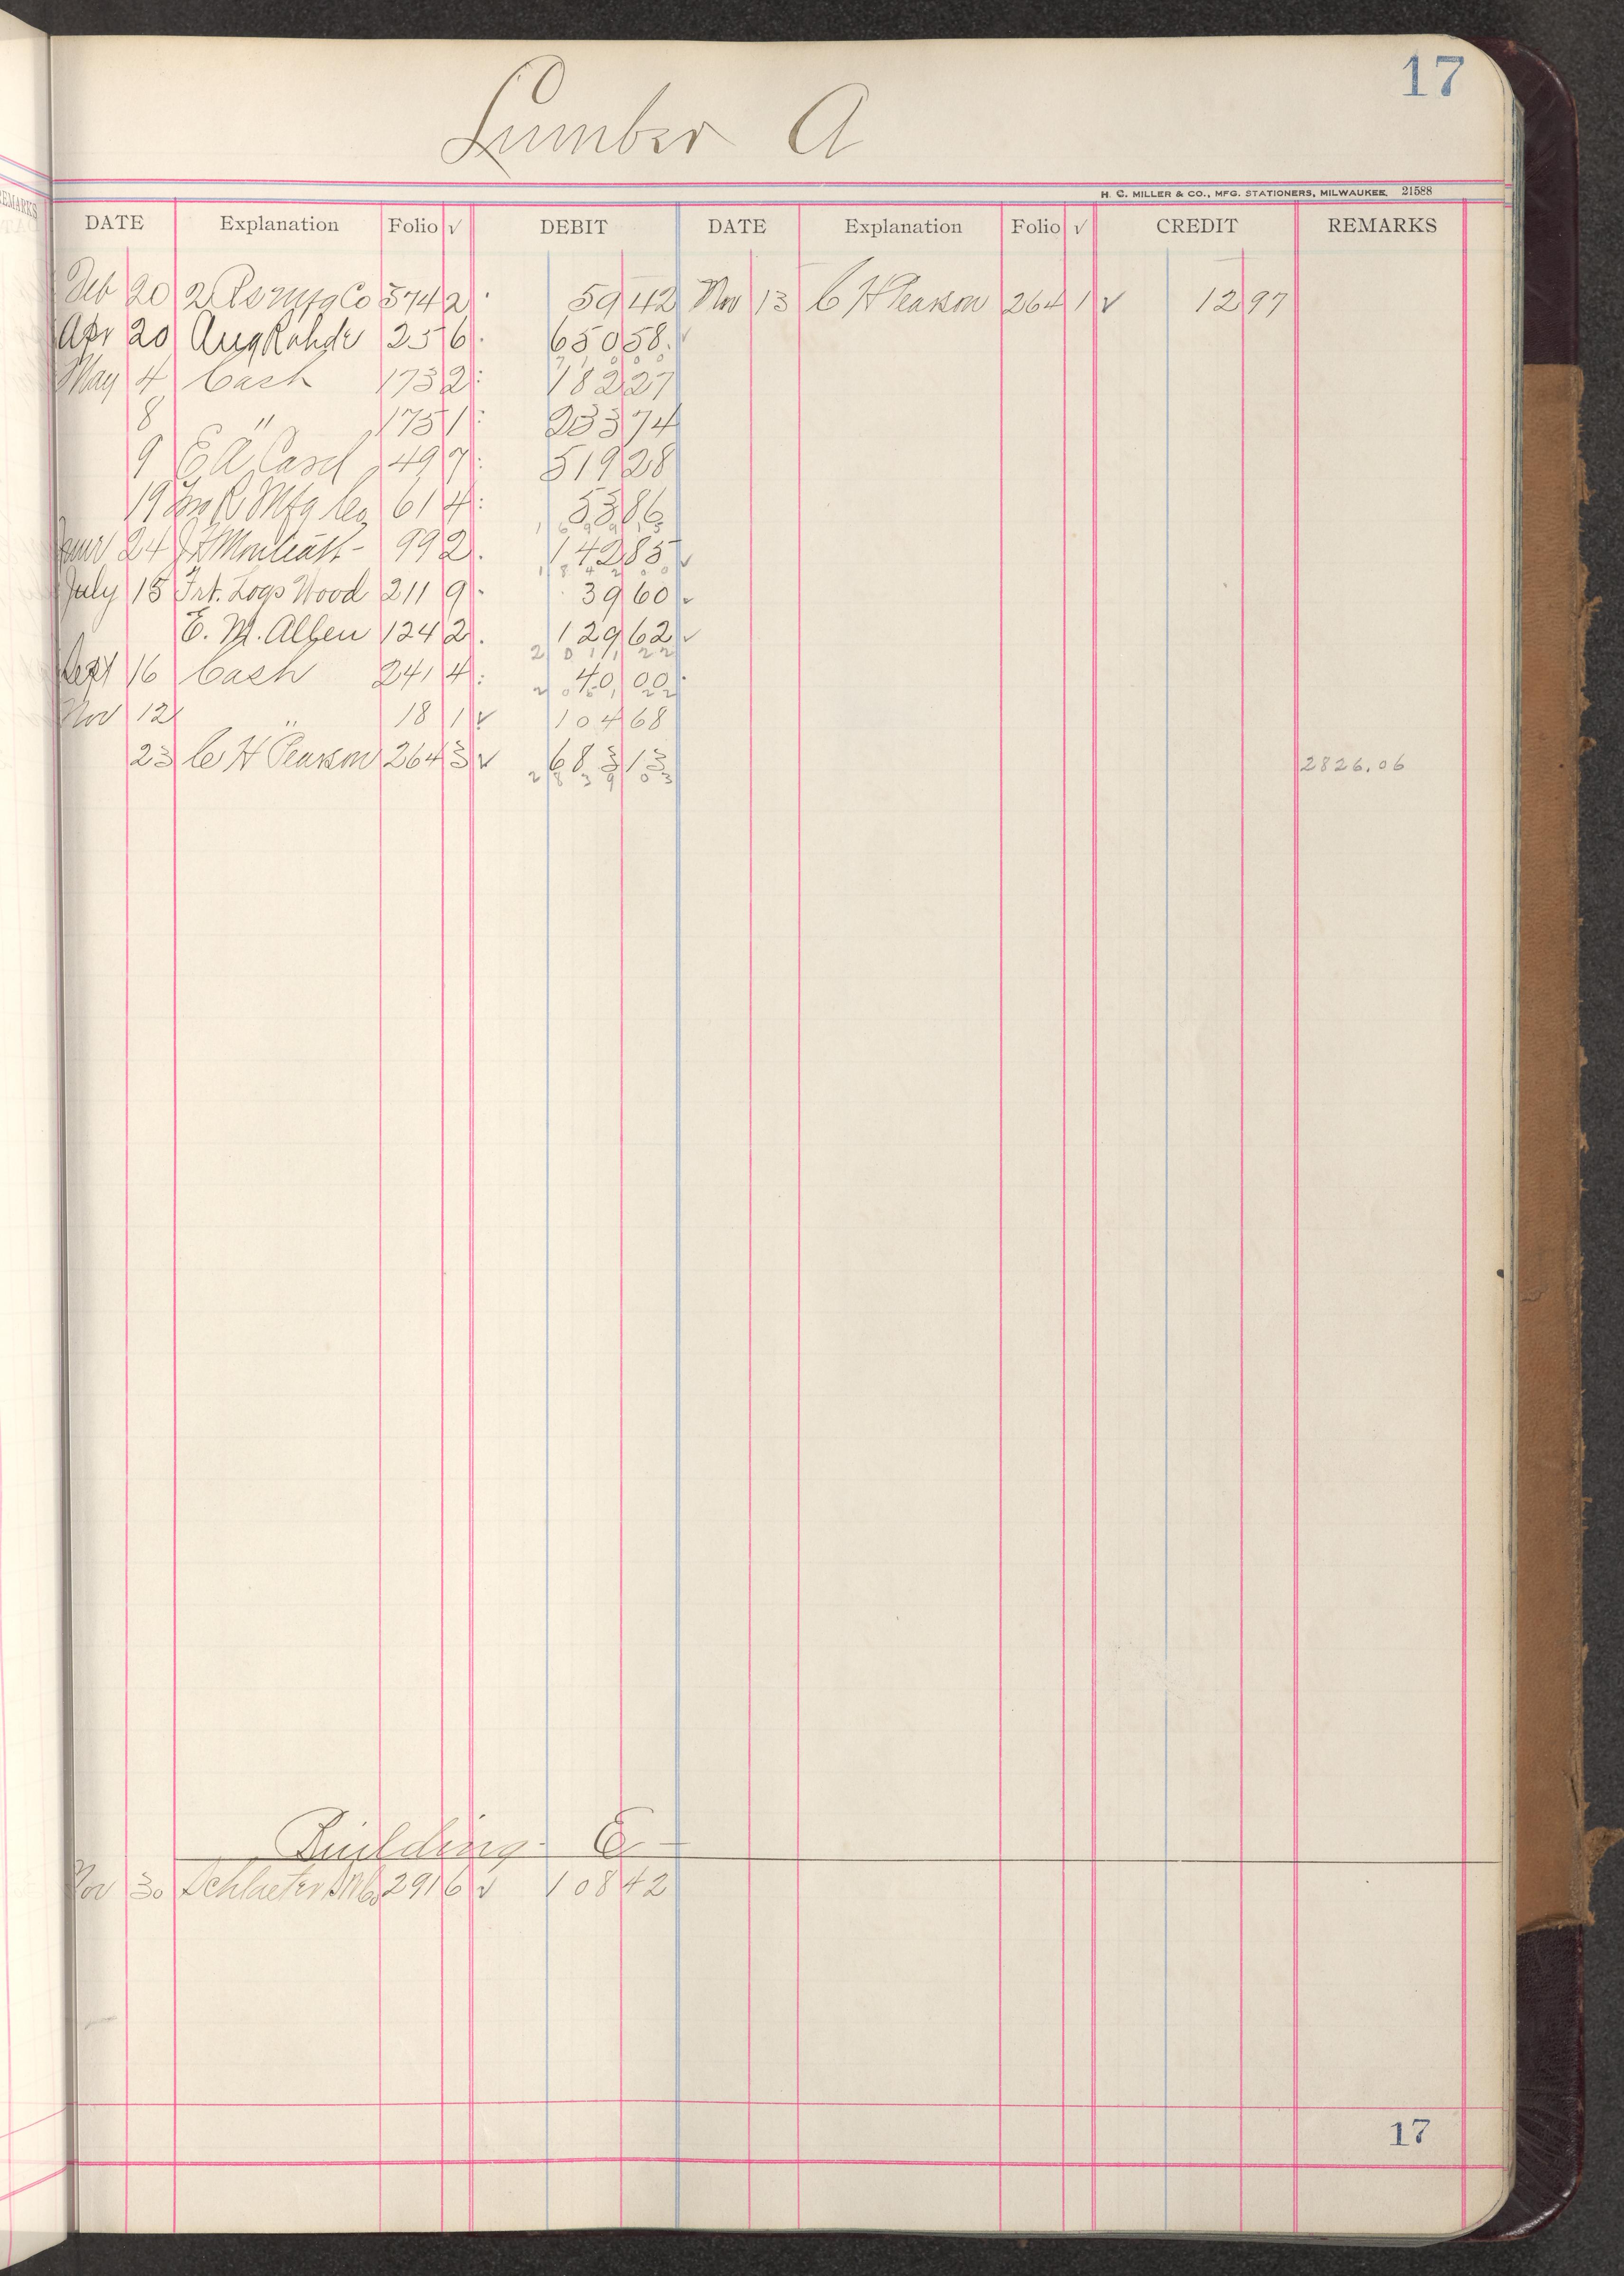 17
Lumber A
H. C. MILLER & CO., MFG. STATIONERS, MILWAUKEE 21588
REMARKS
DATE Explanation Folio √ DEBIT DATE Explanation Folio √ CREDIT REMARKS
Feb 20 2 Rs Mfg Co 374 2 59 42 Nov 13 C H Pearson 264 1 √ 12 97
Apr 20 Aug Rohde 25 6 650 58
7 1 0 0 0
May 4 Cash 173 2 182 27
8 " 175 1 233 74
9 E A Casd 49 7 519 28
19 R Mfg Co 61 4 53 86
1 6 9 9 1 5
June 24 99 2 142 85 √
1 8 4 2 0 0
July 15 Frt. Logs Wood 211 9 39 60 √
E. M. Allen 124 2 129 62 √
2 0 1 1 2 2
Sept 16 Cash 241 4 40 00
2 0 5 1 2 2
Nov 12 " 18 1 √ 104 68
23 C H Pearson 264 3 √ 683 13 2826.06
2 8 3 9 0 3
Building E
Nov 30 Schlueter Co 291 6 √ 108 42
17